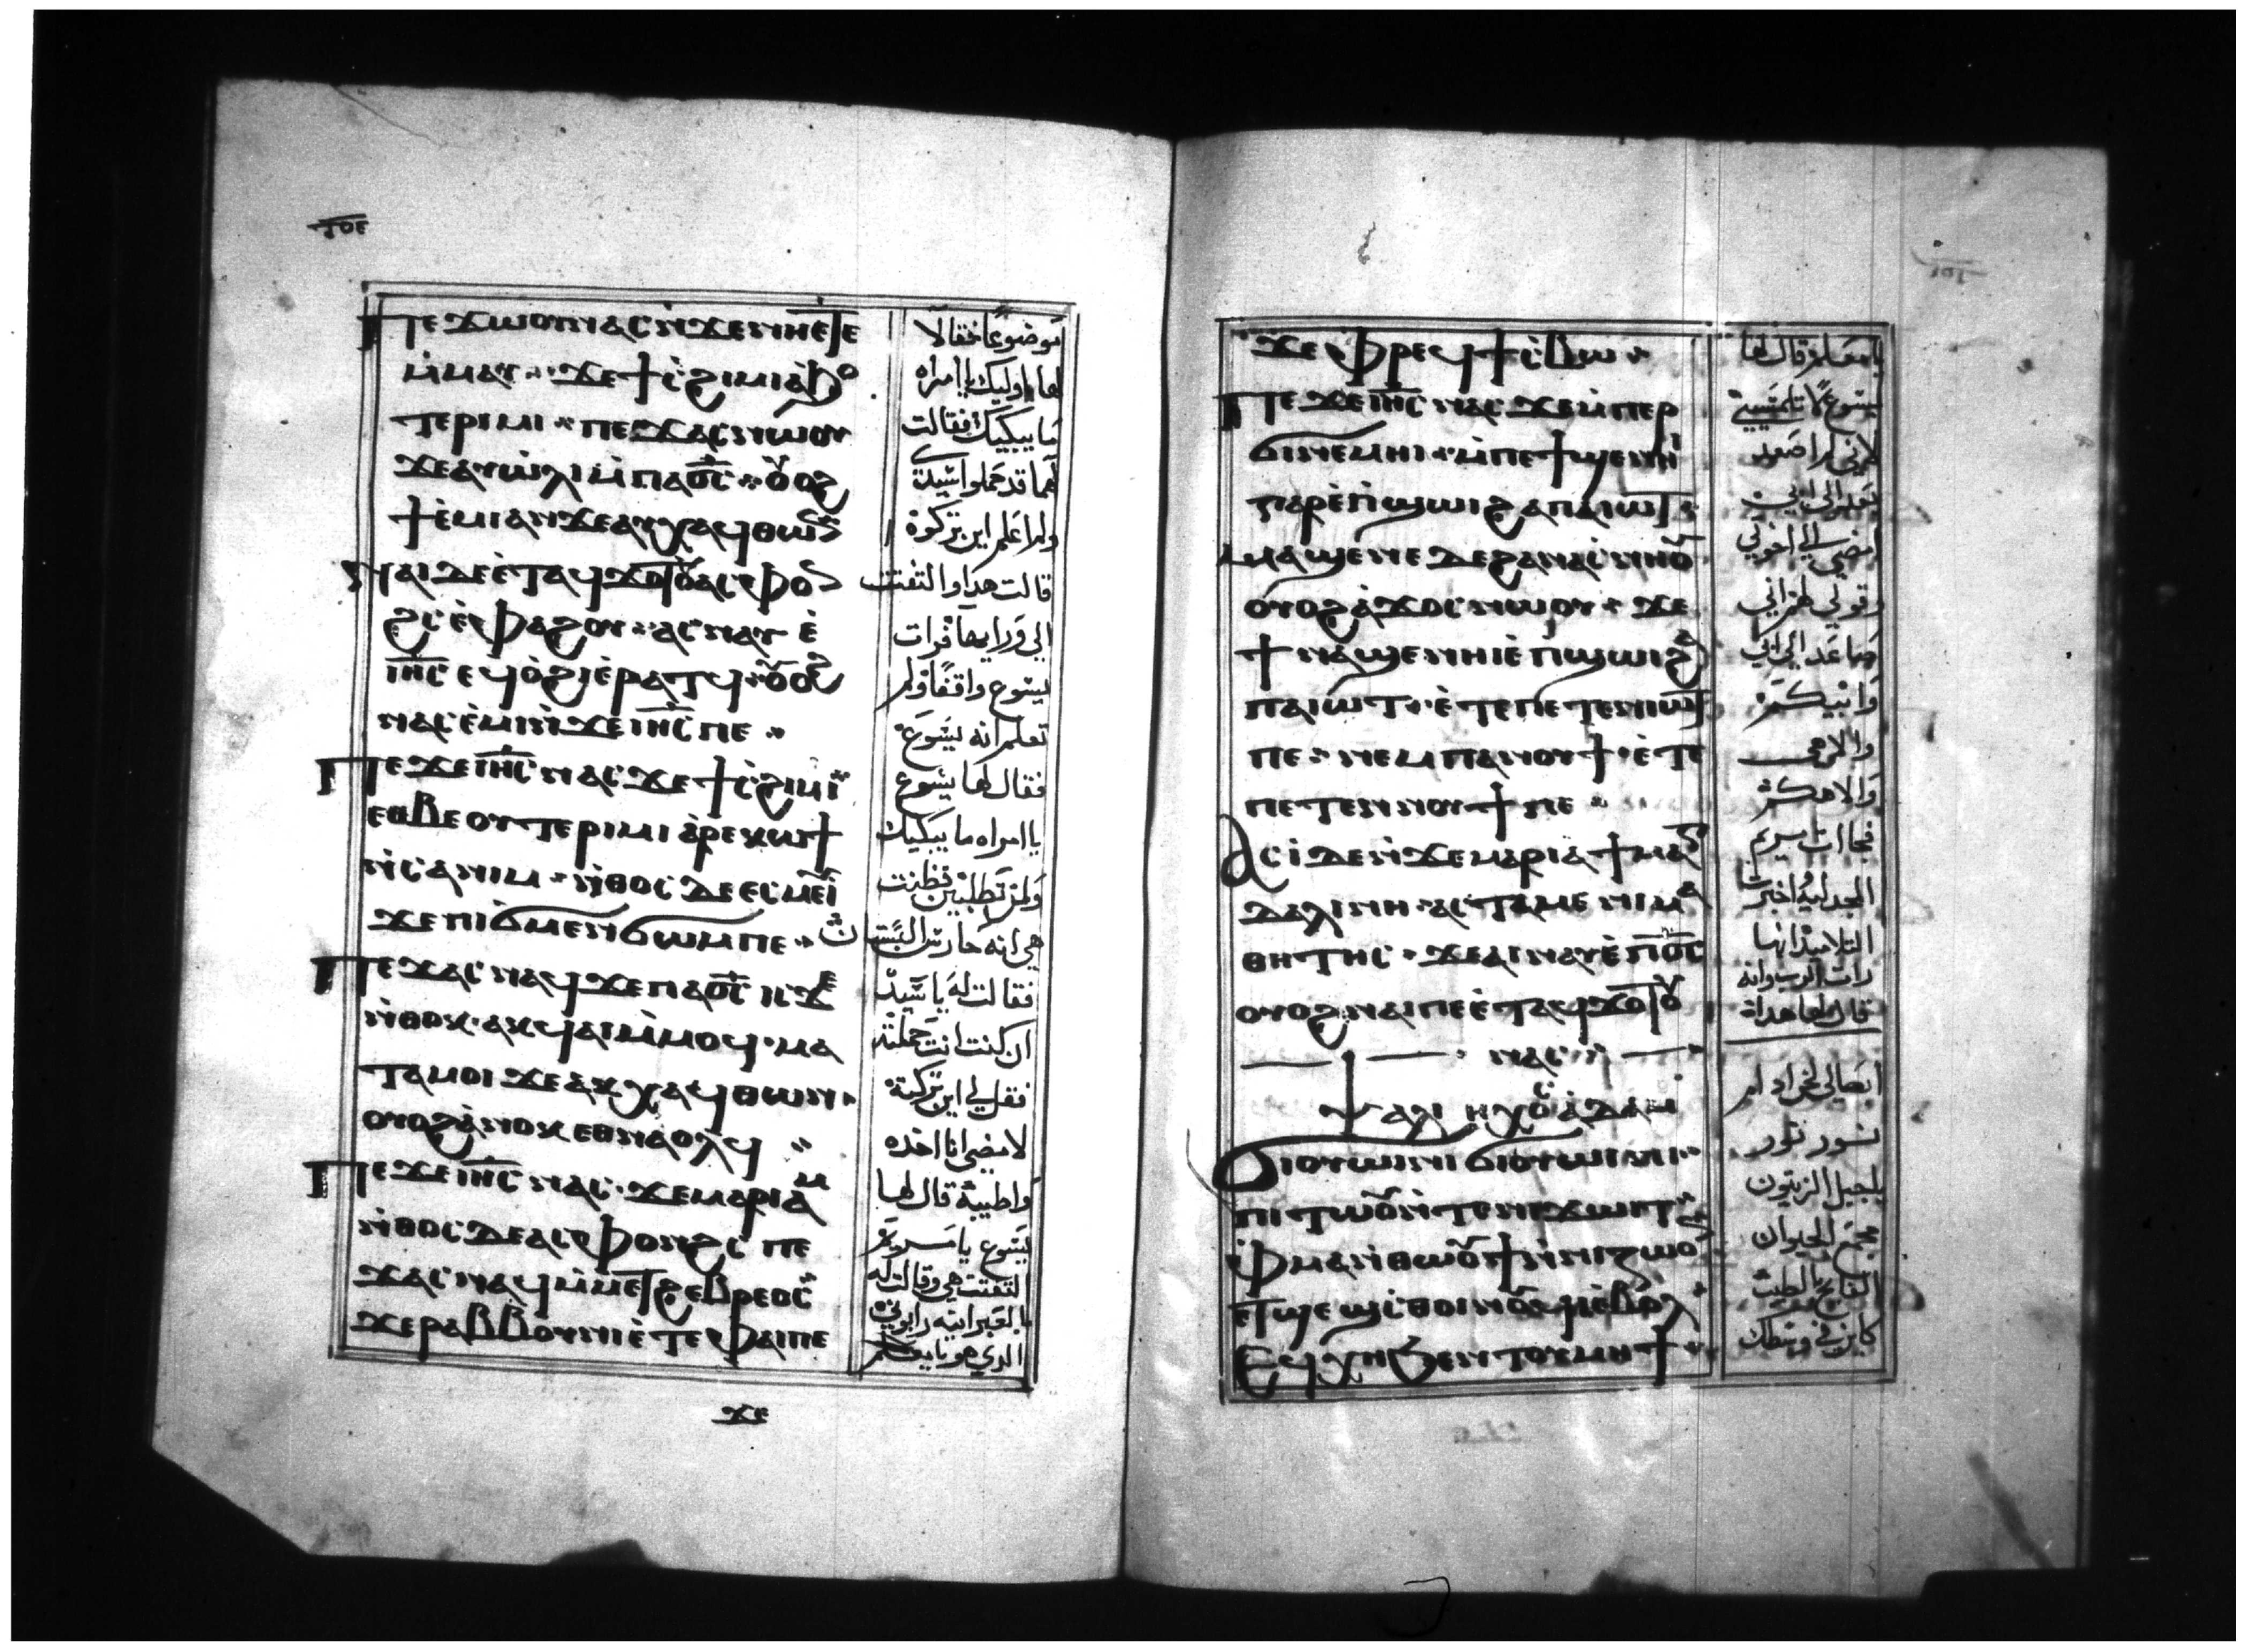 Ⲡⲉϫⲱⲟⲩⲛⲁⲥⲛ̀ϫⲉⲛⲏⲉⲧⲉ
ⲙ̀ⲙⲁⲩ ϫⲉϯⲥ̀ϩⲓⲙⲓⲁ̀ϧⲟ
ⲧⲉⲣⲓⲙⲓ ⲡⲉϫⲁⲥⲛⲱⲟⲩ
ϫⲉⲁⲩⲱ̀ⲗⲓⲙ̀ⲡⲁⲟ̅ⲥ̅ ⲟⲩⲟϩ
ϯⲉ̀ⲙⲓⲁⲛϫⲉⲁⲩⲭⲁϥⲑⲱⲛ
ⲛⲁⲓⲇⲉⲉ̀ⲧⲁϥϫⲟⲧⲟⲩⲁⲥⲫⲟⲛ
ϩⲥⲉ̀ⲫⲁϩⲟⲩ ⲁⲥⲛⲁⲩⲉ̀
ⲓⲏ̅ⲥ̅ ⲉϥⲟ̀ϩⲓⲉ̀ⲣⲁⲧϥ ⲟⲩⲟϩ
ⲛⲁⲥⲉ̀ⲙⲓⲛ̀ϫⲉⲓⲏ̅ⲥ̅ⲡⲉ
Ⲡⲉϫⲉⲓⲏ̅ⲥ̅ⲛⲁⲥ ϫⲉϯⲥ̀ϩⲓⲙⲓ
ⲉⲑⲃⲉⲟⲩⲧⲉⲣⲓⲙⲓ ⲁ̀ⲣⲉⲕⲱϯ
ⲛ̀ⲥⲁⲛⲓⲙ ⲛ̀ⲑⲟⲥ ⲇⲉⲉⲥⲙⲉⲩⲓ̀
ϫⲉⲡⲓϭⲙⲉⲛϭⲱⲙⲡⲉ
Ⲡⲉϫⲁⲥⲛⲁϥϫⲉⲡⲁⲟ̅ⲥ̅ ⲓⲥϫⲉ
ⲛ̀ⲑⲟⲕ ⲁⲕϥⲁⲓⲙ̀ⲙⲟϥ ⲙⲁ
ⲧⲁⲙⲟⲓ ϫⲉⲁⲕⲭⲁϥⲑⲱⲛ
ⲟⲩⲟϩⲁ̀ⲛⲟⲕⲉⲑⲛⲁⲟⲗϥ
Ⲡⲉϫⲉⲓⲏ̅ⲥ̅ⲛⲁⲥ ϫⲉⲙⲁⲣⲓⲁⲙ
ⲛ̀ⲑⲟⲥⲇⲉⲁⲥⲫⲟⲛϩⲥ ⲡⲉ
ϫⲁⲥⲛⲁϥⲙ̀ⲙⲉⲧϩⲉⲃⲣⲉⲟⲥ
ϫⲉⲣⲁⲃⲃⲟⲩⲛⲓ ⲉ̀ⲧⲉⲫⲁⲓⲡⲉ
ϫⲉ
موضوعًا فقالا
لها اوليك يا امراه
ما يبكيك فقالت
لهما قد حملوا سيدي
ولم اعلم اين تركوه
قالت هدا والتفتت
الي ورايها فرات
يسوع واقفًا ولم
تعلم انه يسوع
فقال لها يسوع
يا امراه ما يبكيك
ولمن تطلبين فظنت
هي انه حارس البستان
فقالت له يا سيد
ان كنت انت حملته
فقل لي اين تركته
لامضي انا اخده
واطيبه قال لها
يسوع يا مريم
التفتت هي وقالت له
بالعبرانيه رابوني
الدي هو يا معلم
ϫⲉⲫⲣⲉϥϯⲥ̀ⲃⲱ
Ⲡⲉϫⲉⲓⲏ̅ⲥ̅ⲛⲁⲥ ϫⲉⲙ̀ⲡⲉⲣ
ϭⲓⲛⲉⲙⲏⲓ ⲙ̀ⲡⲉϯϣⲉⲛⲏⲓ
ⲅⲁⲣⲉ̀ⲡ̀ϣⲱⲓϩⲁⲡⲁⲓⲱⲧ
ⲙⲁϣⲉⲛⲉ ⲇⲉϩⲁⲛⲁⲥⲛⲏⲟⲩ
ⲟⲩⲟϩⲁ̀ϫⲟⲥⲛⲱⲟⲩ ϫⲉ
ϯⲛⲁϣⲉⲛⲏⲓⲉ̀ⲡ̀ϣⲱⲓϩⲁ
ⲡⲁⲓⲱⲧ ⲉ̀ⲧⲉⲡⲉⲧⲉⲛⲓⲱⲧ
ⲡⲉ ⲛⲉⲙⲡⲁⲛⲟⲩϯ ⲉ̀ⲧⲉ
ⲡⲉⲧⲉⲛⲛⲟⲩϯⲡⲉ
Ⲁⲥⲓ̀ⲇⲉⲛ̀ϫⲉⲙⲁⲣⲓⲁϯⲙⲁⲅ
ⲇⲁⲗⲓⲛⲏ ⲁⲥⲧⲁⲙⲉⲛⲓⲙⲁ
ⲑⲏⲧⲏⲥ ϫⲉⲁⲓⲛⲁⲩⲉ̀ⲡⲟ̅ⲥ̅
ⲟⲩⲟϩⲛⲁⲓⲡⲉⲉ̀ⲧⲁϥϫⲟⲧⲟⲩ
ⲛⲁⲥ
Ⲯⲁⲗⲓ ⲏⲭⲟⲥ ⲁ̀ⲇⲁⲙ
Ϭⲓⲟⲩⲱⲓⲛⲓ ϭⲓⲟⲩⲱⲓⲛⲓ
ⲡⲓⲧⲱⲟⲩⲛ̀ⲧⲉⲛⲓϫⲱⲓⲧ
ⲫⲙⲁⲛ̀ⲑⲱⲟⲩϯⲛ̀ⲛⲓⲍⲱⲟⲛ
ⲉⲧϣⲉϣⲥ̀ⲑⲟⲓⲛⲟⲩϥⲓⲉ̀ⲃⲟⲗ
Ⲉϥⲭⲏϧⲉⲛⲧⲟⲩⲙⲏϯ
يا معلم قال لها
يسوع لا تلمسيني
لاني لم اصعد
بعد الي ابي
امضي الي اخوتي
وقولي لهم اني
صاعد الي ابي
وابيكم
والاهي
والاهكم
فجاات مريم
المجدليه اخبرت
التلاميد انها
رات الرب وانه
قال لها هدا
ابصاليه ادام
نور نور
يا جبل الزيتون
مجمع الحيوان
الفايح الطيب
كاين في وسطك